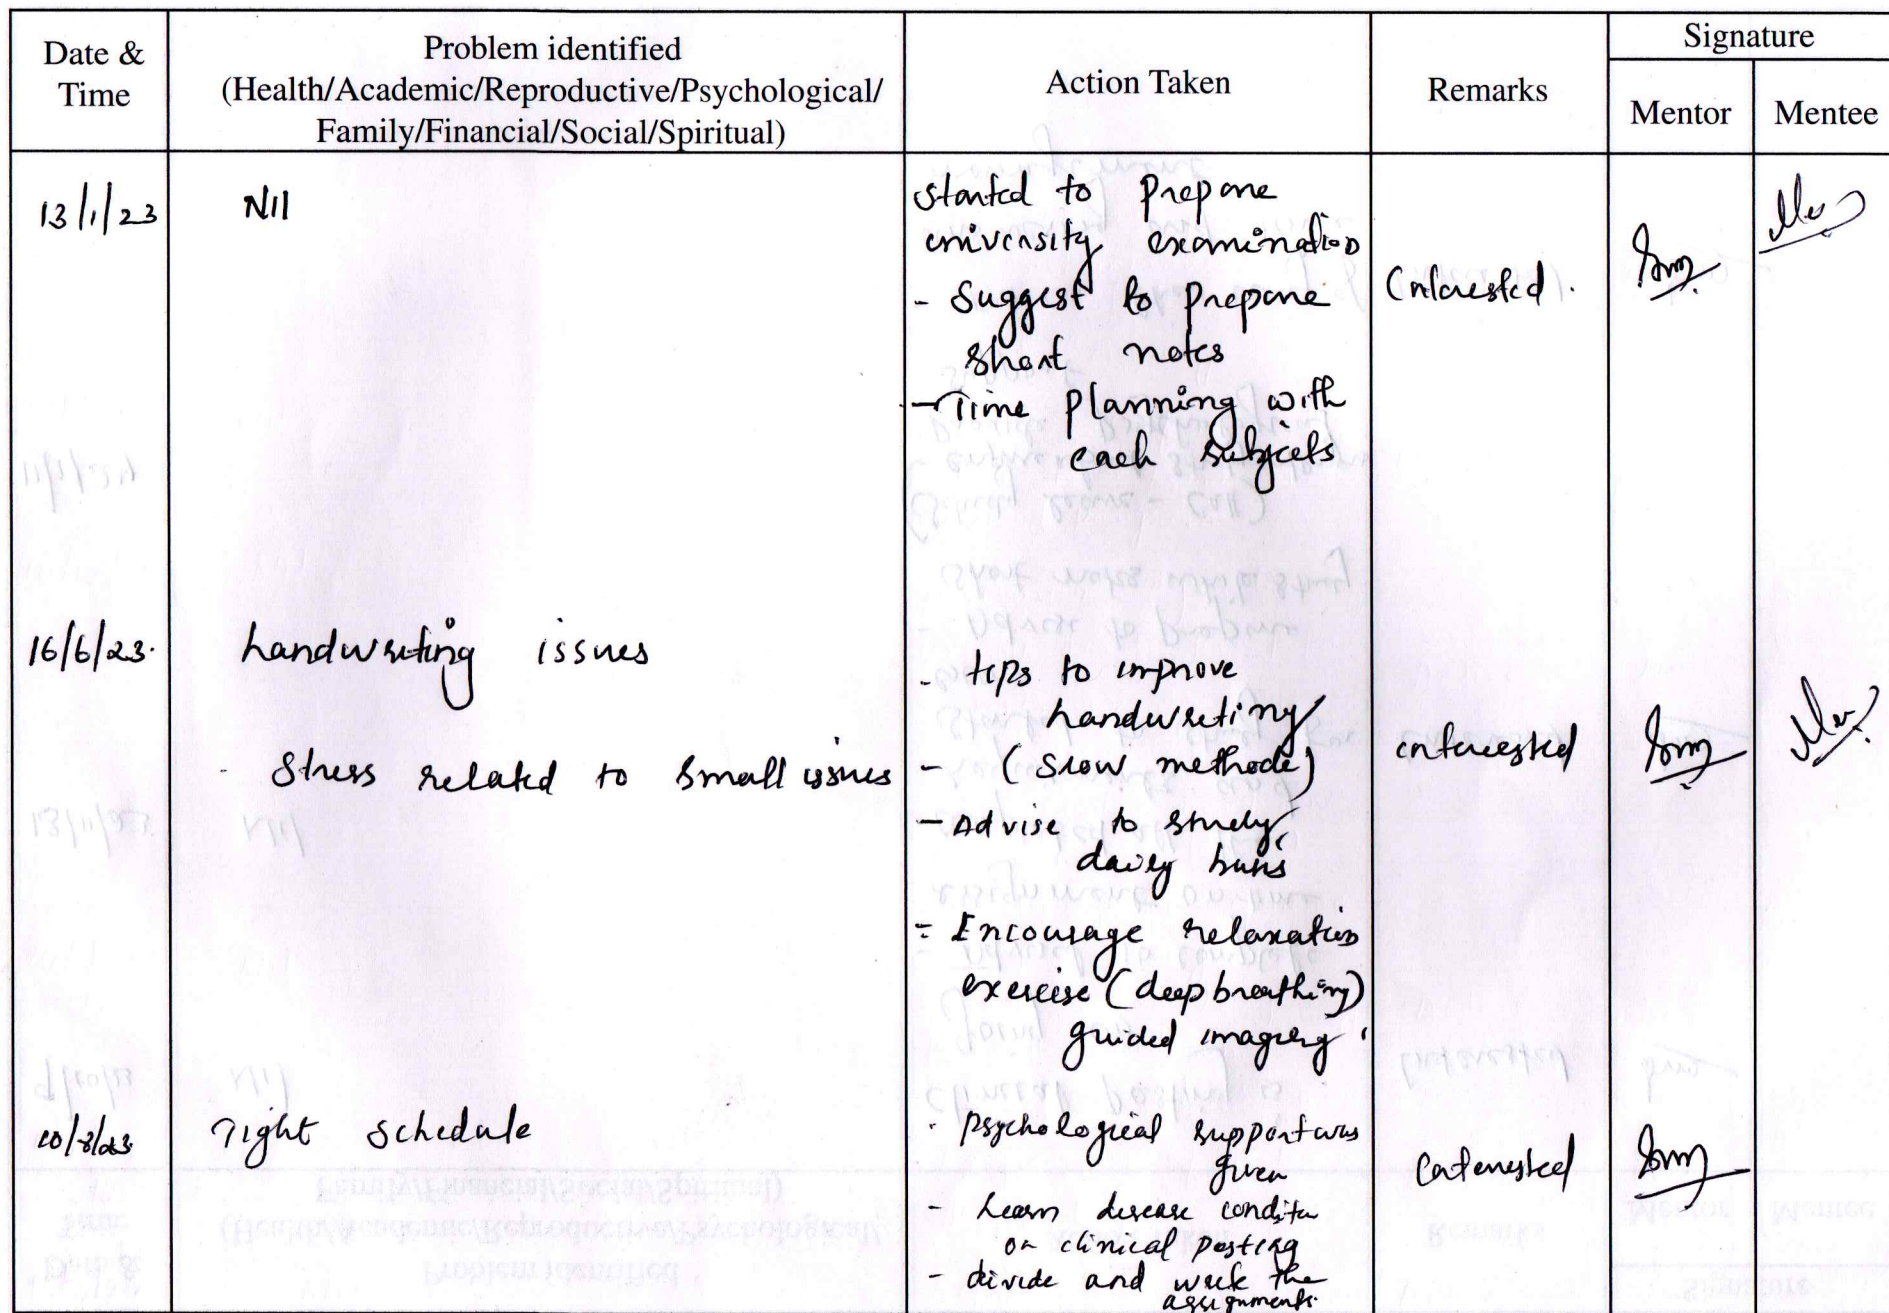 Date & Time
Problem identified
(Health/Academic/Reproductive/Psychological/
Family/Financial/Social/Spiritual)
Action Taken
Remarks
Signature
Mentor
Mentee
13/1/23
Nil
Started to prepare
university examination
- Suggest to prepare
short notes
- Time planning with
each subjects
interested.
16/6/23.
handwriting issues
- Stress related to small issues
- tips to improve
handwriting
- (slow methode)
- Advise to study
daily
- Encourage relaxation
exercise (deep breathing)
guided imagery
interested
Tight schedule
- psychological support was
given
- Learn disease
on clinical posting
- divide and the
assignments
interested